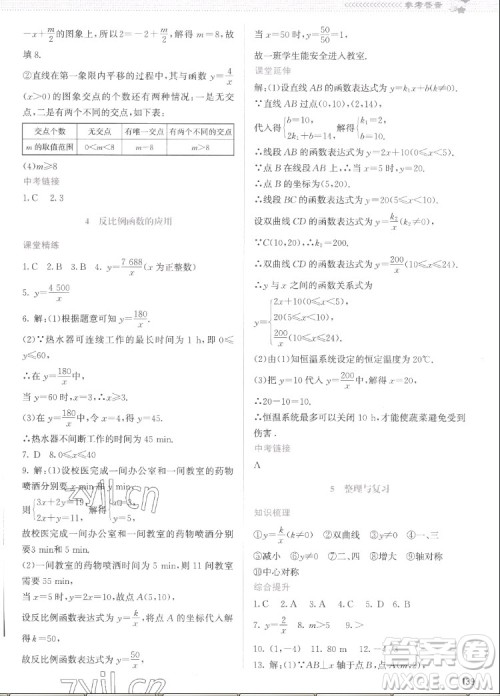 参考答案
－x＋m，可得 2＝－2＋m/2，解得 m＝8，故
填 8.
②直线在第一象限内平移的过程中，其与 y＝4/x
(x＞0)的图象交点的个数还有两种情况：一是无交
点，二是有两个不同的交点，如下表：
交点个数 无交点 有唯一交点 有两个不同的交点
m 的取值范围 0＜m＜8 m＝8 m＞8
(4)m≥8
中考链接
1. C 2. 3
4 反比例函数的应用
课堂精练
1. C 2. B 3. C 4. y＝7 688/x(x 为正整数)
5. y＝4 500/x
6. 解：(1)根据题意可知：y＝180/x.
(2)∵热水器可连续工作的最长时间为 1 h，即 0
≤y≤60，
∴在 y＝180/x 中，
当 0≤y≤60 时，x≥3.
(3)在 y＝180/x 中，当 x＝4 时，y＝45，
∴热水器不间断工作的时间为 45 min.
7. D 8. ＜
9. 解：(1)设校医完成一间办公室和一间教室的药物
喷洒各要 x min 和 y min，
则{3x＋2y＝19, 2x＋y＝11, 解得{x＝3, y＝5.
故校医完成一间办公室和一间教室的药物喷洒分别
要3 min 和 5 min.
(2)一间教室的药物喷洒时间为 5 min，则 11 间教
室需要 55 min，
当 x＝5 时，y＝2x＝10，故点 A(5，10)，
设反比例函数表达式为 y＝k/x，将点 A 的坐标代入
解得 k＝50，故反比例函数表达式为 y＝50/x，
当 x＝50 时，y＝50/50＝1，
故一班学生能安全进入教室.
课堂延伸
解：(1)设直线 AB 的函数表达式为 y＝k₁x＋b(k≠0).
∵直线 AB 过点(0，10)，(2，14)，
代入得{b＝10, 2k₁＋b＝14, 解得{k₁＝2, b＝10.
∴直线 AB 的函数表达式为 y＝2x＋10(0≤x≤5).
∵点 B 在线段 AB 上，当 x＝5 时，y＝20，
∴点 B 坐标为(5，20).
∴线段 BC 的函数表达式为 y＝20(5≤x≤10).
设双曲线 CD 的函数表达式为 y＝k₂/x(k₂≠0).
∵C(10，20)，∴k₂＝200.
∴双曲线 CD 的函数表达式为 y＝200/x(10≤x≤24).
∴y 与 x 之间的函数关系式为
y＝{2x＋10(0≤x＜5), 20(5≤x＜10), 200/x(10≤x≤24)
(2)由(1)知恒温系统设定的恒定温度为 20℃.
(3)把 y＝10 代入 y＝200/x 中，解得 x＝20.
20－10＝10.
∴恒温系统最多关闭 10 h，才能使蔬菜避免受到
伤害.
中考链接
A
5 整理与复习
知识梳理
①y＝k/x ②双曲线 ③y≠0 ④一、三
⑤减小 ⑥y≠0 ⑦二、四 ⑧增大 ⑨轴对称
⑩中心对称
综合提升
1. C 2. A 3. D 4. B 5. B 6. C
7. y＝2/x 8. m＞5
10. (1，4) 11. 80 m
13. 解：(1)∵AB⊥x 轴于点
zyjl.cn
作业精灵